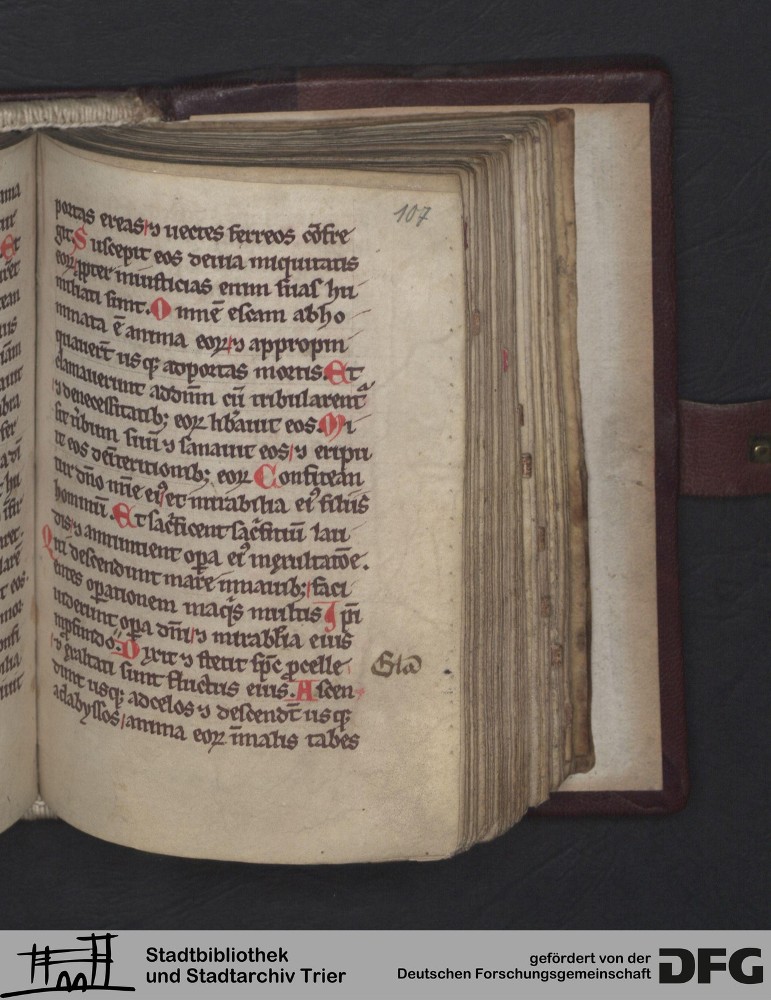 107
portas ereas ⁊ uectes ferreos cōfre
git. Suscepit eos deuia iniquitatis
eoꝝ ꝓpter iniusticias enim suas hu
miliati sunt. Omnē escam abho
minata ē anima eoꝝ ⁊ appropin
quauerт̄ usqꝫ adportas mortis. Et
clamauerunt addn̄m cū tribularent᷑
⁊ denecessitatibꝫ eoꝝ lib̾auit eos. Mi
sit u̾bum suū ⁊ sanauit eos ⁊ eripu
it eos deīteritionibꝫ eoꝝ Confitean
tur dn̄o mīe eiꝰ et mirabilia eiꝰ filiis
hominū. Et sac̾ficent sac̾ficiū lau
dis ⁊ annuntient oꝑa eiꝰ inexultatōe.
Qui descendunt mare innauibꝫ faci
entes oꝑationem inaqͥs multis Ip̄i
uiderunt oꝑa dn̄i ⁊ mirabilia eius
inꝓfundo. Dixit ⁊ stetit sp̄c ꝓcelle
⁊ exaltati sunt fluctus eius. Ascen
Gl̄a
dunt usqꝫ adcelos ⁊ descendūt usqꝫ
adabyssos anima eoꝝ īmalis tabes
Stadtbibliothek
und Stadtarchiv Trier
gefördert von der
Deutschen Forschungsgemeinschaft
DFG